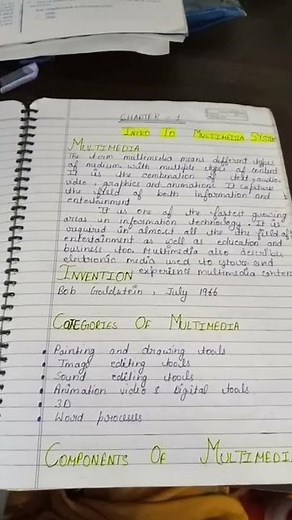 CHAPTER - 1
INTRO TO MULTIMEDIA SYSTEM
MULTIMEDIA
The term multimedia means different types
of medium with multiple types of content
It is the combination of text, audio
video, graphics and animations. It captures
the effect of both information and
entertainment
It is one of the fastest growing
areas in information technology. It is
required in almost all the field of
entertainment as well as education and
business too. Multimedia also describes
electronic media used to store and
INVENTION experience multimedia content
Bob Goldstein, July 1966
CATEGORIES OF MULTIMEDIA
Painting and drawing tools
Image editing tools
Sound editing tools
Animation video & Digital tools
3D
Word processes
COMPONENTS OF MULTIMEDIA